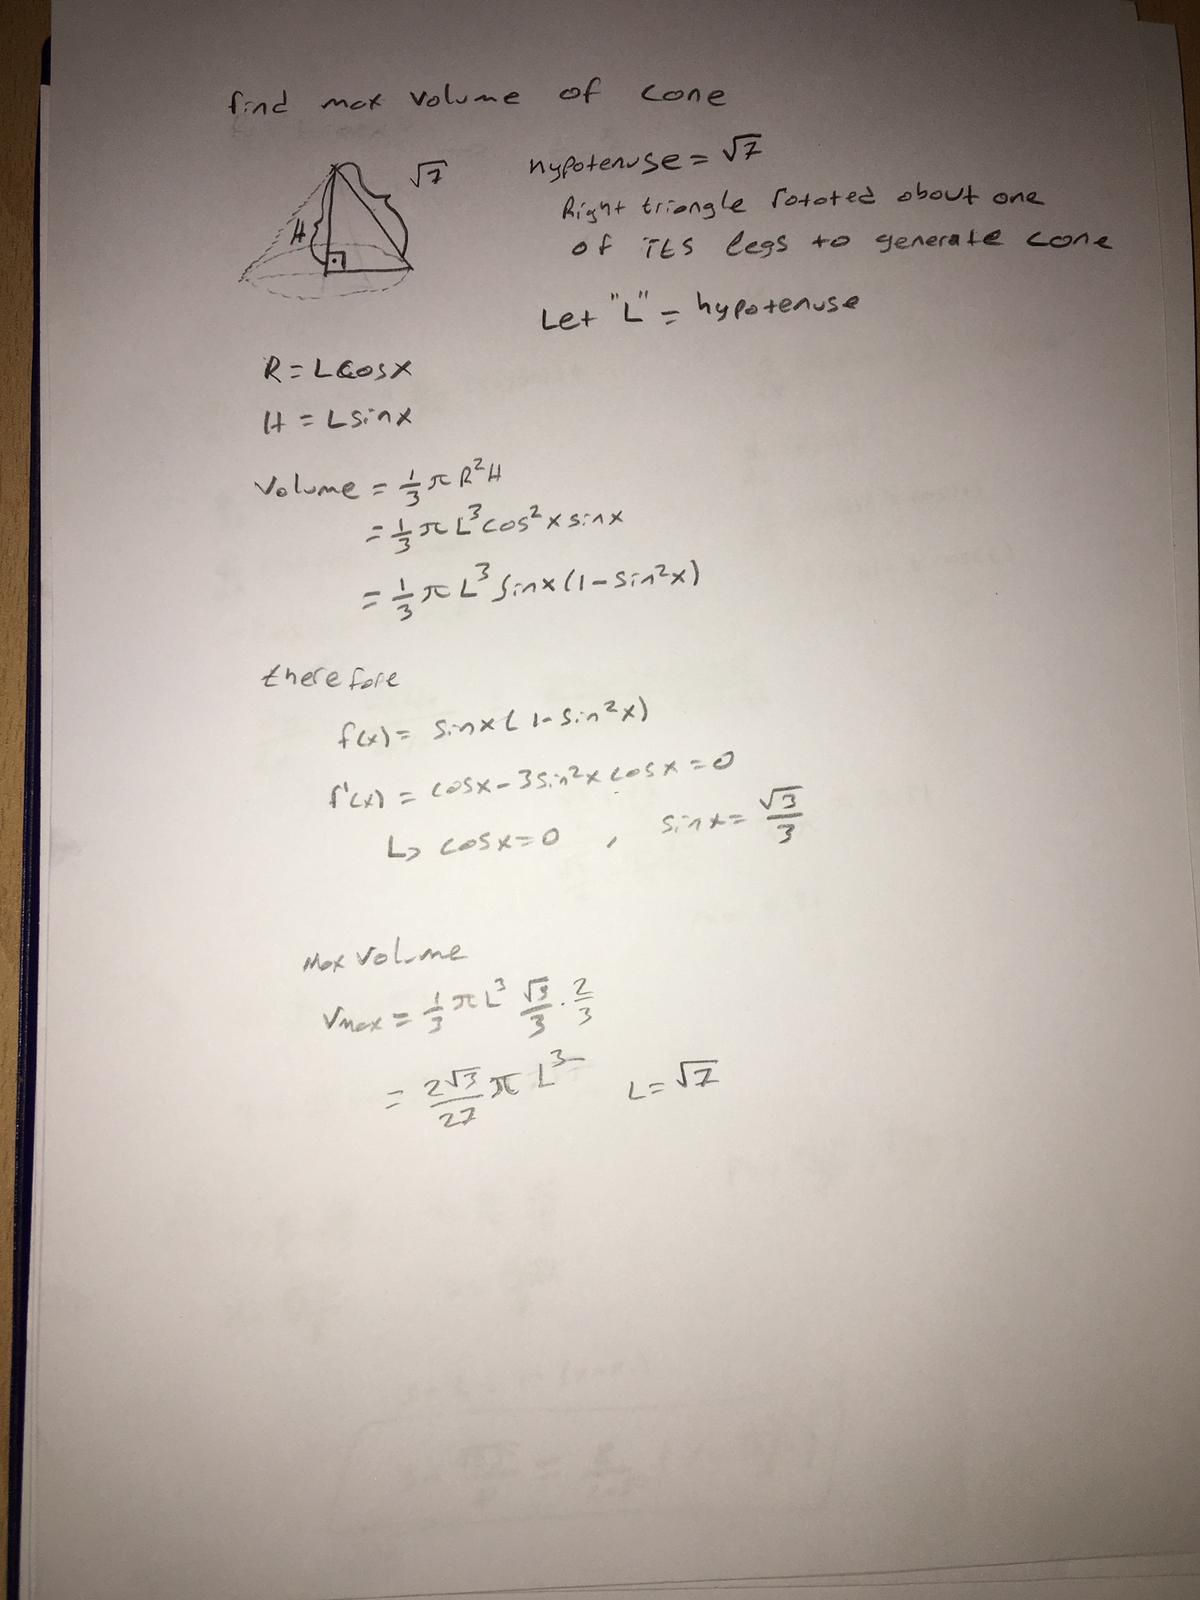 find max volume of cone
√7
hypotenuse = √7
Right triangle rotated about one
H
of its legs to generate cone
Let "L" = hypotenuse
R = L cosx
H = L sinx
Volume = 1/3 π R²H
= 1/3 π L³ cos² x sinx
= 1/3 π L³ sinx (1 - sin²x)
therefore
f(x) = sinx ( 1 - sin²x)
f'(x) = cosx - 3sin²x cosx = 0
L> cosx = 0 , sinx = √3/3
Max volume
Vmax = 1/3 π L³ √3/3 . 2/3
= 2√3/27 π L³ L = √7